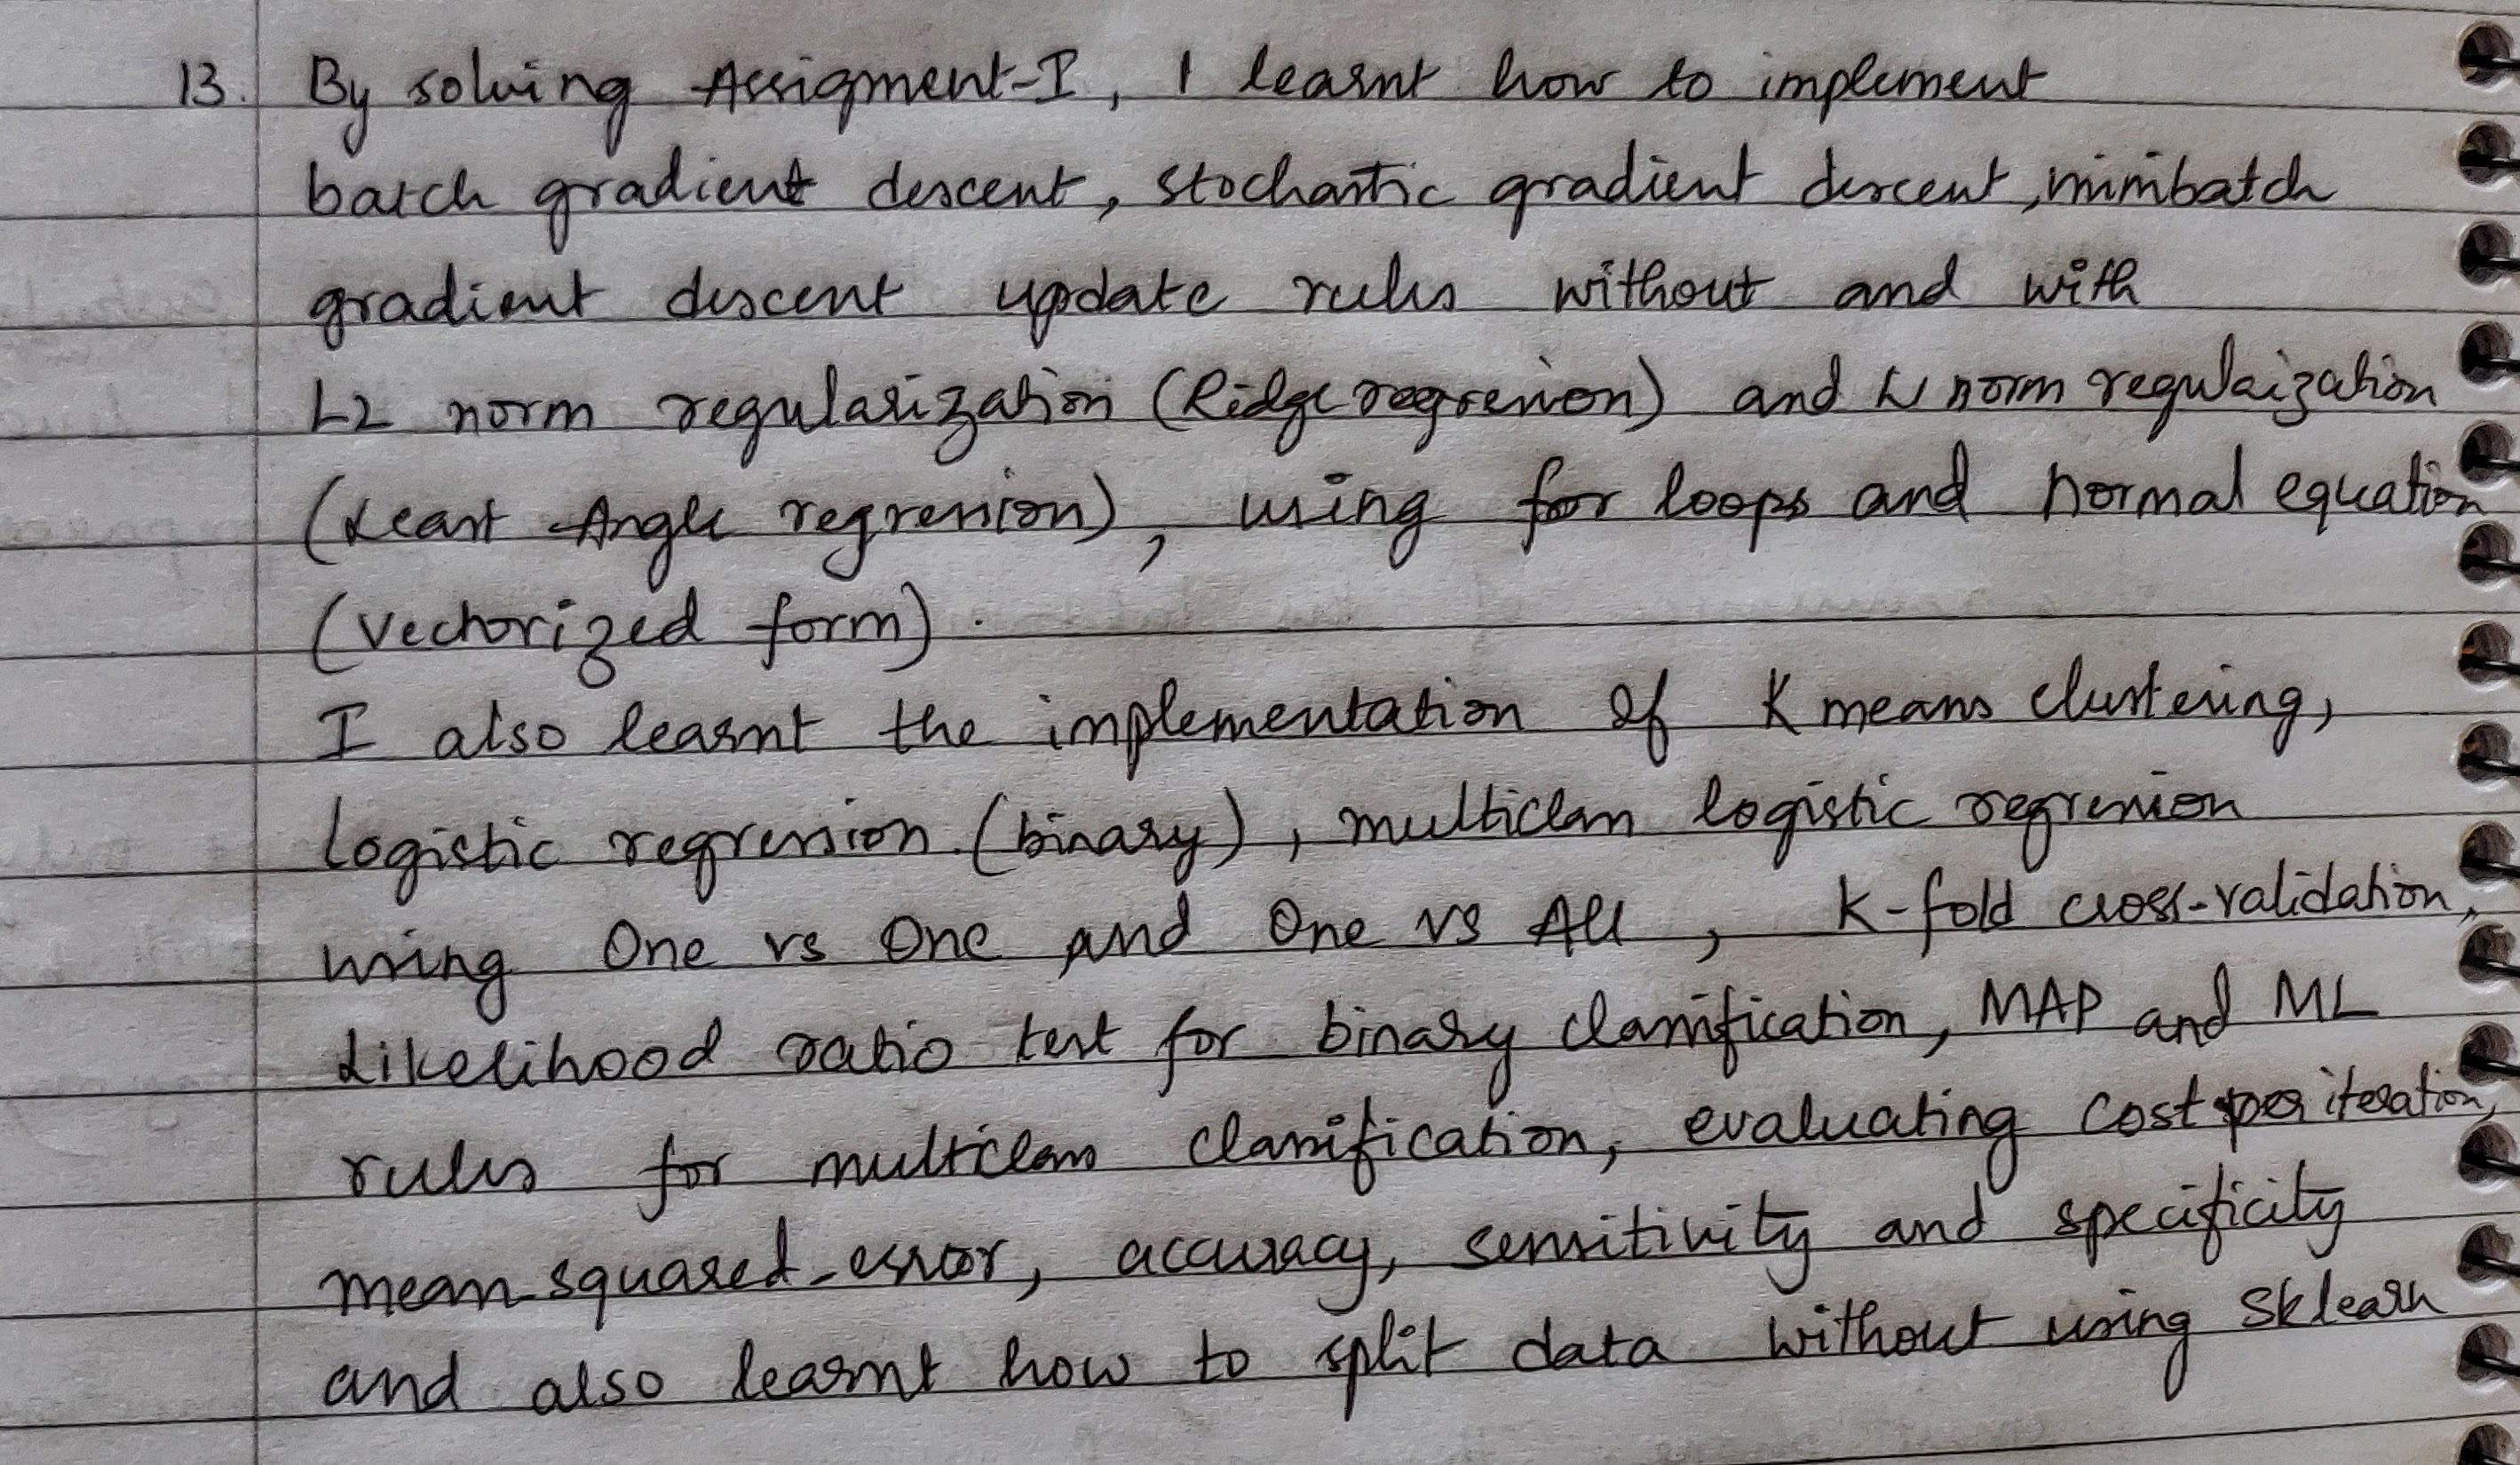 13. By solving Assigment-I, I learnt how to implement
batch gradient descent, stochastic gradient descent, minibatch
gradient descent update rules without and with
L2 norm regularization (Ridge regression) and L1 norm regulaization
(Least Angle regression), using for loops and normal equation
(vectorized form).
I also learnt the implementation of K means clustering,
logistic regression (binary), multiclass logistic regression
using One vs One and One vs All, K-fold cross-validation,
Likelihood ratio test for binary classification, MAP and ML
rules for multiclass classification, evaluating cost per iteration,
mean-squared-error, accuracy, sensitivity and specificity
and also learnt how to split data without using Sklearn